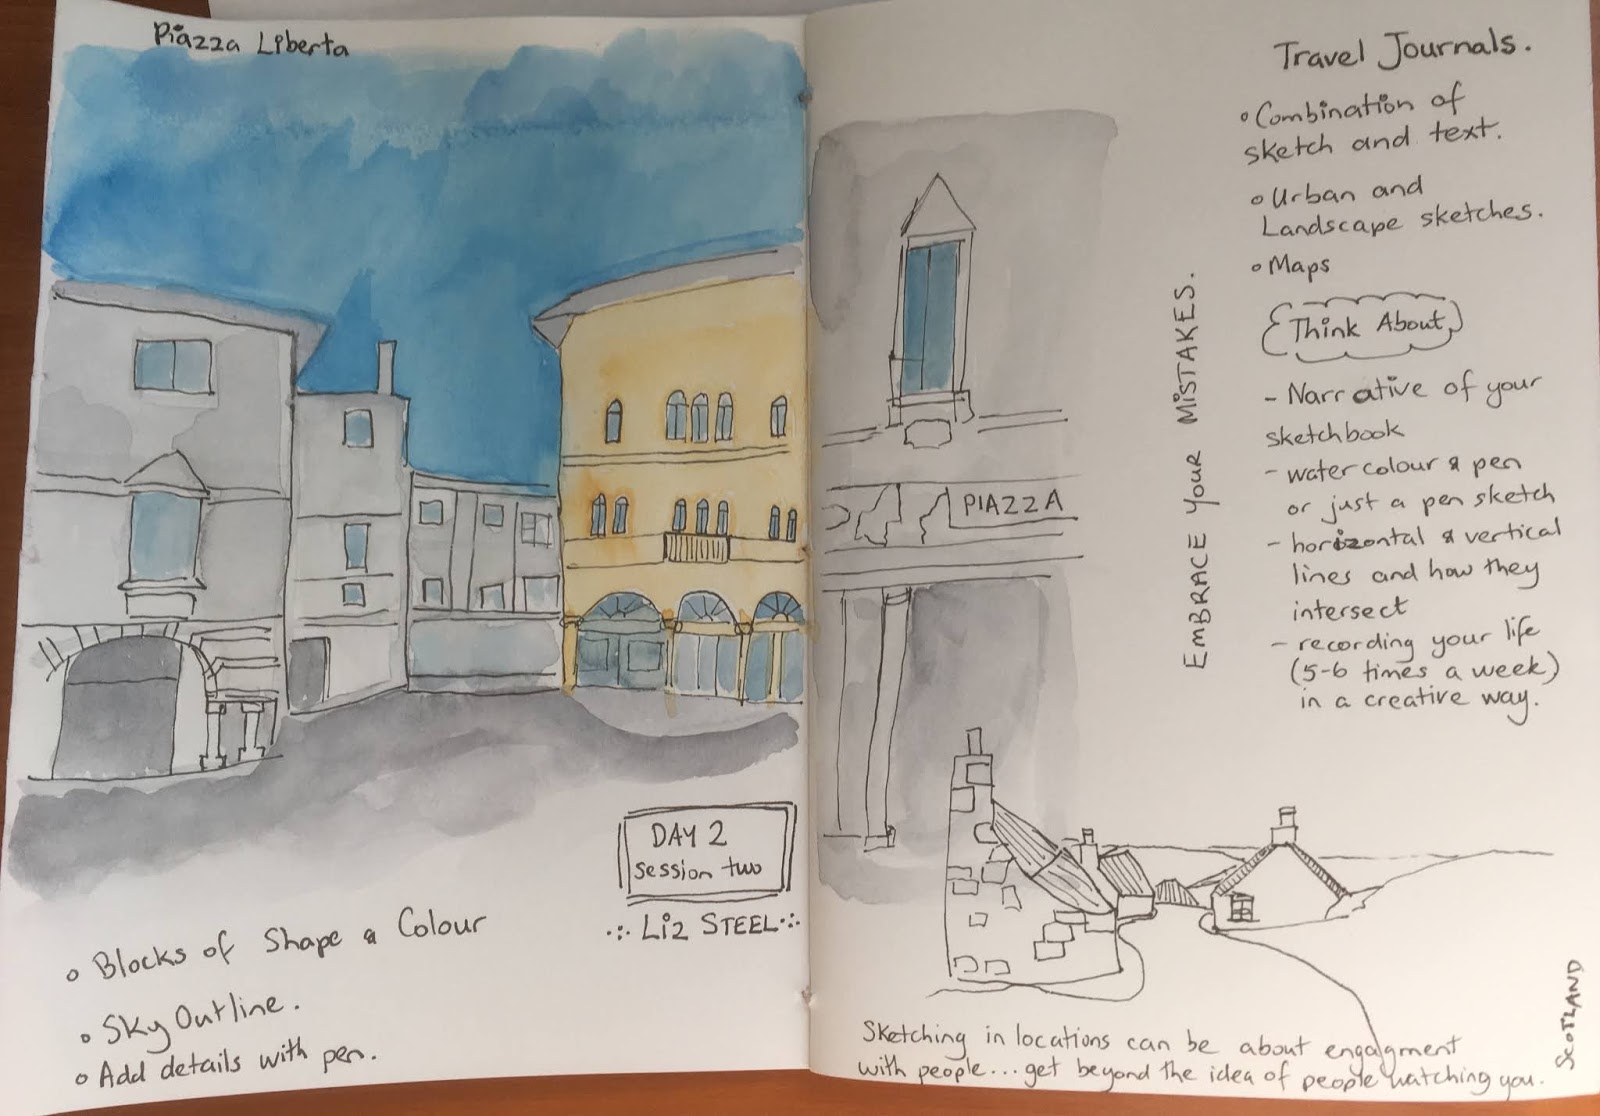 Piazza Liberta
DAY 2
session two
LIZ STEEL
Blocks of Shape & Colour
Sky Outline.
Add details with pen.
Travel Journals.
Combination of
sketch and text.
Urban and
Landscape sketches.
Maps
Think About
- Narrative of your
sketchbook
- watercolour & pen
or just a pen sketch
- horizontal & vertical
lines and how they
intersect
- recording your life
(5-6 times a week)
in a creative way.
EMBRACE YOUR MISTAKES.
PIAZZA
SCOTLAND
Sketching in locations can be about engagment
with people... get beyond the idea of people watching you.